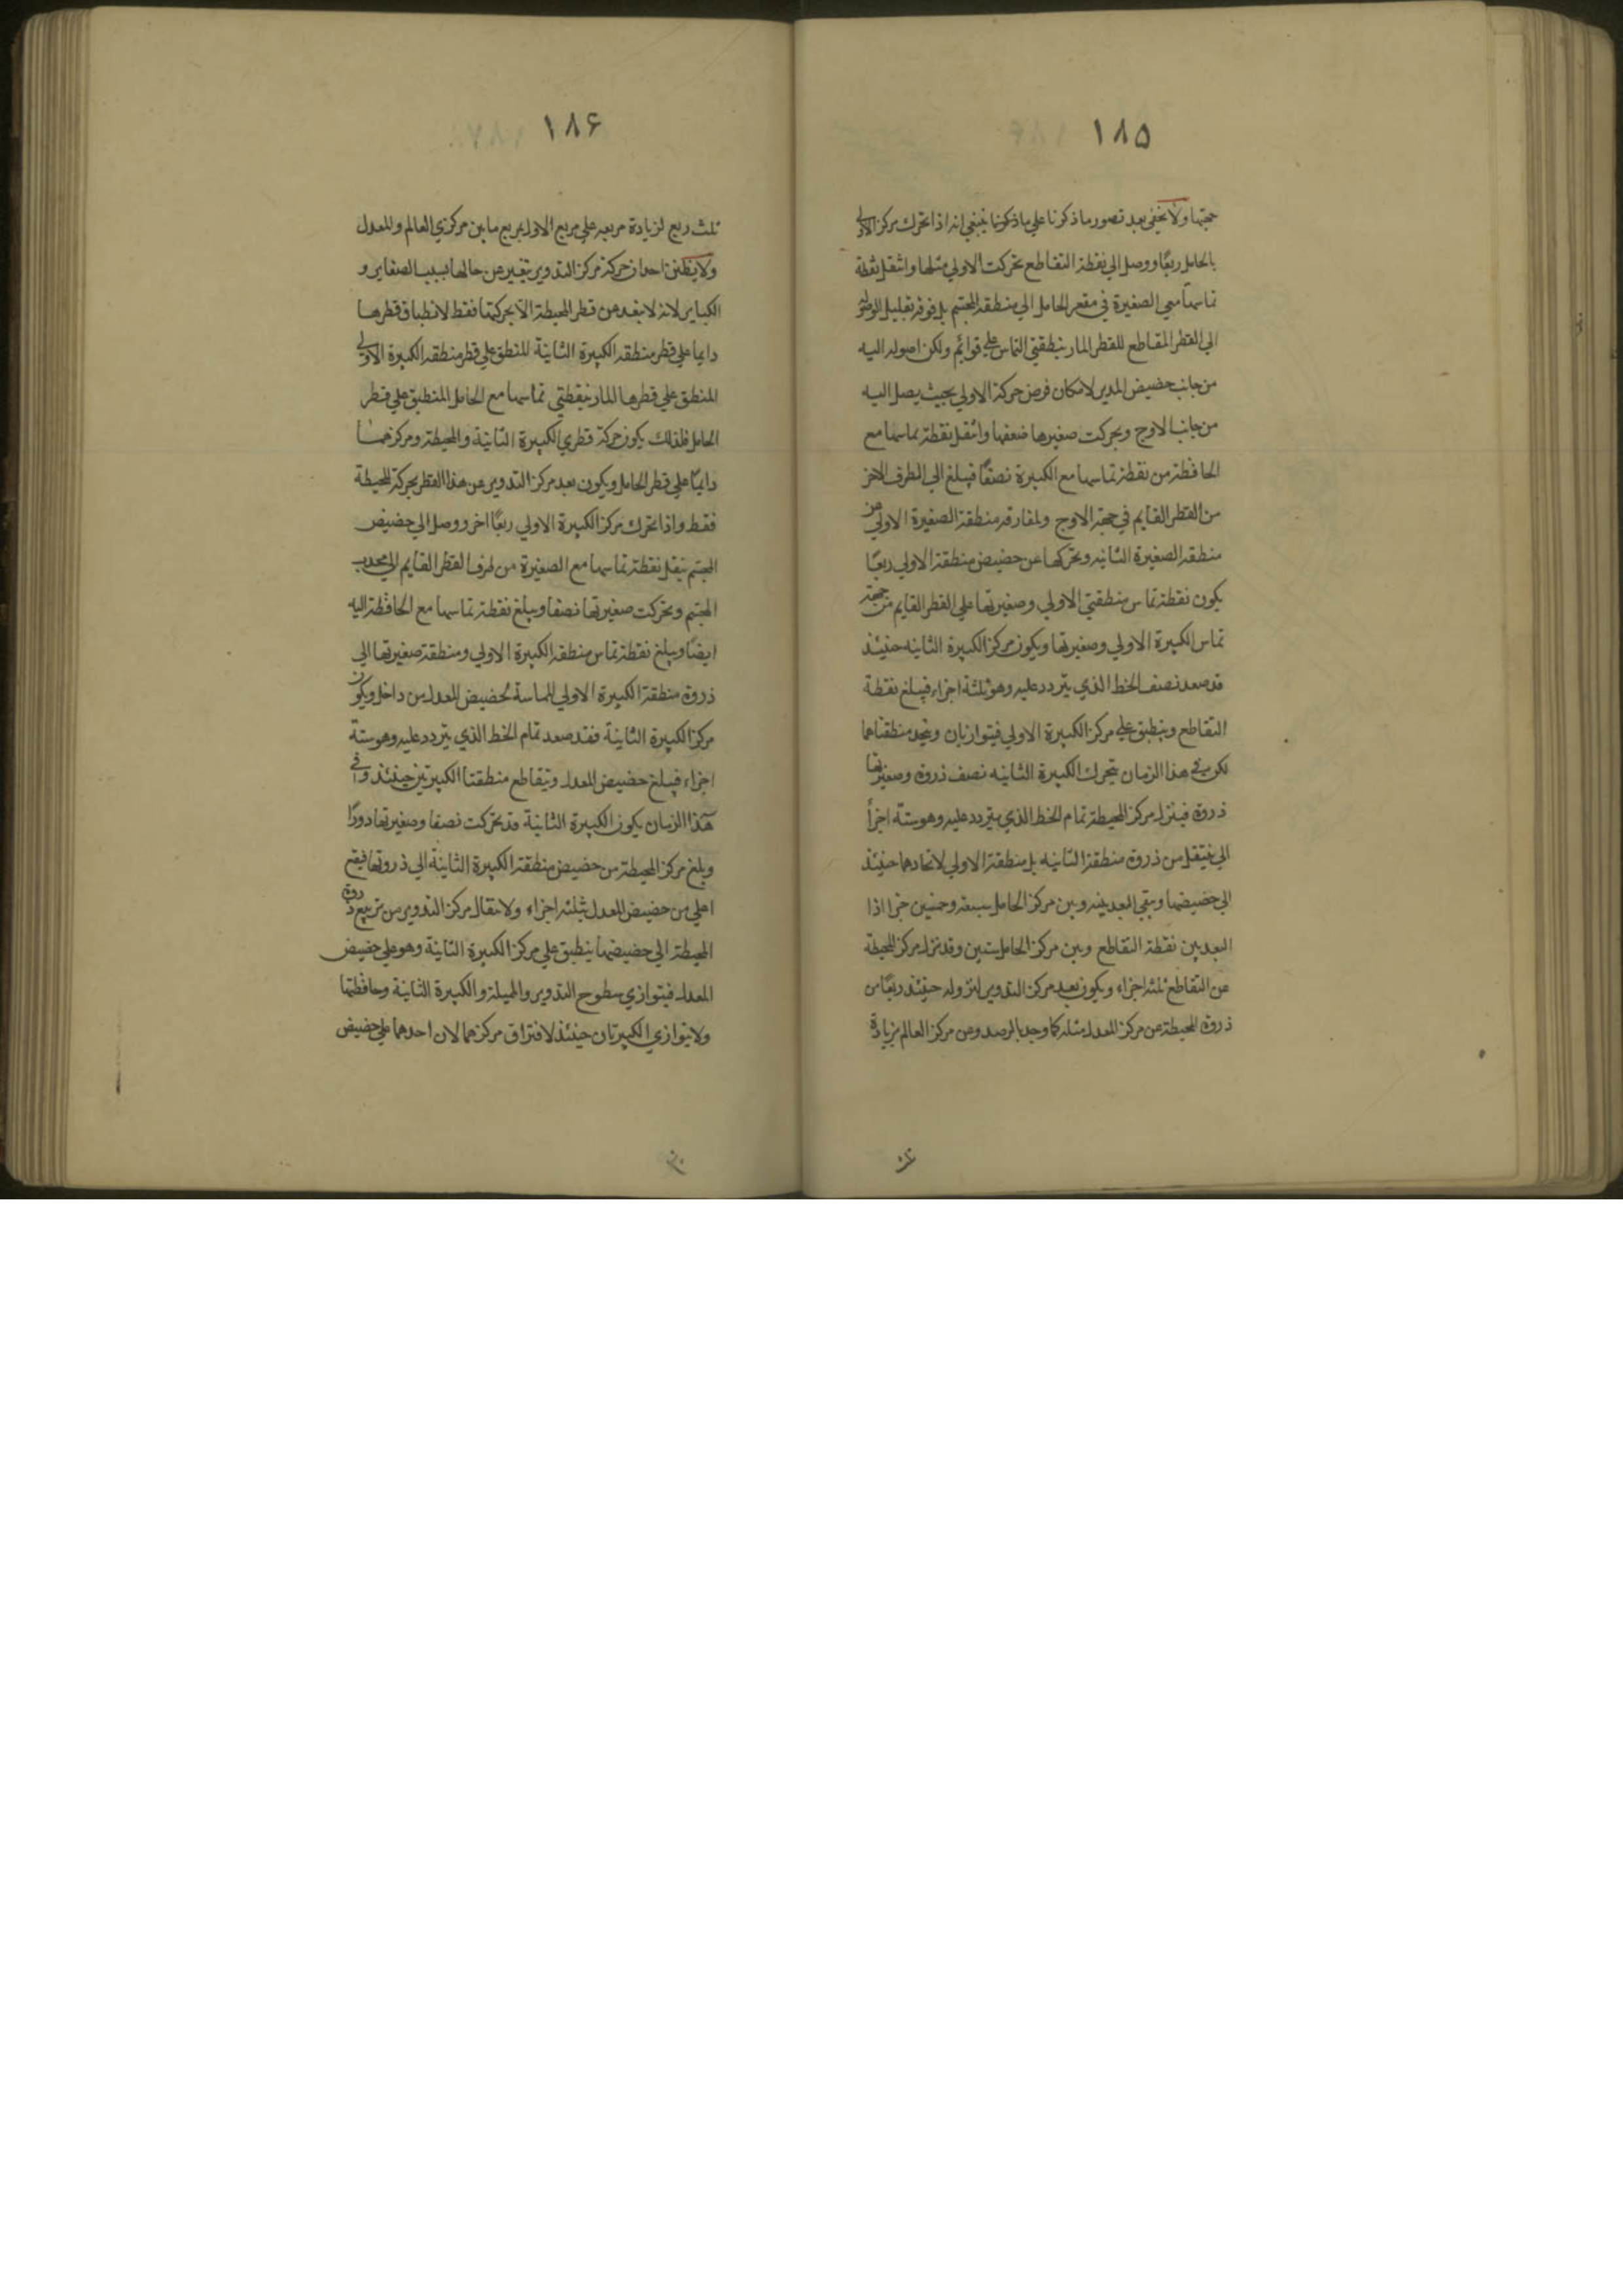 ١٨٥
جهتها ولا يخفى بعد تصور ما ذكرنا على ما ذكرنا ينبغي انه اذا تحرك مركز الاولى
بالحامل ربعًا ووصل الى نقطة التقاطع تحركت الاولى مثلها وانتقل نقطة
تماسها مع الصغيرة في مقعر الحامل الى منطقة المجسم بل فوقه بقليل
الى القطر المقاطع للقطر المار بنقطتي التماس على قوائم ولكن اصوله اليه
من جانب حضيض المدير لامكان فرض حركة الاولى بحيث يصل اليه
من جانب الاوج وبحركت صغيرها ضعفها وانتقل نقطة تماسها مع
الحافظة من نقطة تماسها مع الكبيرة نصفًا فيبلغ الى الطرف الاخر
من القطر القايم في جهة الاوج ولمفارقه منطقة الصغيرة الاولى من
منطقه الصغيرة الثانيه وتحركها عن حضيض منطقة الاولى ربعًا
يكون نقطة تماس منطقتي الاولى وصغيرتها على القطر القايم من جهة
تماس الكبيرة الاولى وصغيرتها ويكون مركز الكبيرة الثانيه حينئذ
قد صعد نصف الخط الذي يتردد عليه وهو ثلثة اجزاء فيبلغ نقطة
التقاطع وينطبق على مركز الكبيرة الاولى فيتوازيان ويتحد منطقتاهما
لكن في هذا الزمان يتحرك الكبيرة الثانيه نصف ذروه وصغيرتها
ذروة فينزل مركز المحيطة تمام الخط الذي يتردد عليه وهو ستة اجزأ
الى ينتقل من ذروة منطقة الثانيه بل منطقة الاولى لاتحادهما حينئذ
الى حضيضها ويبقى البعد بينه وبين مركز الحامل سبعة وخمسين جزا اذا
البعد بين نقطة التقاطع وبين مركز الحامل ستين وقد نزل مركز المحيطة
عن التقاطع ثلثه اجزاء ويكون بعد مركز التدوير لنزوله حينئذ ربعًا من
ذروة المحيطة عن مركز المعدل مثله كما وجد بالرصد وعن مركز العالم بزيادة
١٨۶
ثلث ربع لزيادة مربعه على مربع الاول بمربع ما بين مركزي العالم والمعدل
ولا يظنن احد ان حركة مركز التدوير تتغير عن حالها بسبب الصغاير و
الكباير لانه لا يبعد من قطر المحيطة الا بحركتها فقط لانطباق قطرها
دايما على قطر منطقه الكبيرة الثانية المنطبق على قطر منطقه الكبيرة الاولى
المنطبق على قطرها المار بنقطتي تماسها مع الحامل المنطبق على قطر
الحامل فلذلك يكون حركة قطري الكبيرة الثانية والمحيطة ومركزهما
دايمًا على قطر الحامل ويكون بعد مركز التدوير عن هذا القطر بحركة المحيطة
فقط واذا تحرك مركز الكبيرة الاولى ربعًا اخر ووصل الى حضيض
المجسم ينقل نقطة تماسها مع الصغيرة من طرف القطر القايم الى محدب
المجسم وتحركت صغيرتها نصفا ويبلغ نقطة تماسها مع الحافظة اليه
ايضًا ويبلغ نقطة تماس منطقة الكبيرة الاولى ومنطقة صغيرتها الى
ذروة منطقة الكبيرة الاولى المماسة لحضيض المعدل من داخل ويكون
مركز الكبيرة الثانية فقد صعد تمام الخط الذي يتردد عليه وهو ستة
اجزاء فيبلغ حضيض المعدل ويتقاطع منطقتا الكبيرتين حينئذ وفي
هذا الزمان يكون الكبيرة الثانية قد تحركت نصفا وصغيرتها دورًا
وبلغ مركز المحيطة من حضيض منطقة الكبيرة الثانية الى ذروتها فيقع
اعلى من حضيض المعدل بثلثه اجزاء ولانتقال مركز التدوير من تربيع ذروة
المحيطة الى حضيضها ينطبق على مركز الكبيرة الثانية وهو على حضيض
المعدل فيتوازي سطوح التدوير والمميلة والكبيرة الثانية وحافظتها
ولا يتوازي الكبيرتان حينئذ لافتراق مركزهما لان احدهما على حضيض